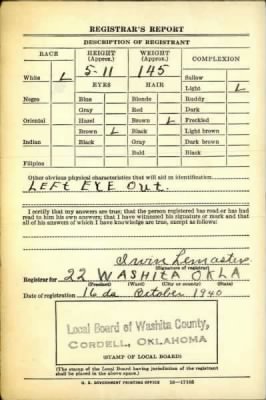 REGISTRAR'S REPORT
DESCRIPTION OF REGISTRANT
RACE HEIGHT (Approx.) WEIGHT (Approx.) COMPLEXION
5-11 145
White L EYES HAIR Sallow
Light L
Negro Blue Blonde Ruddy
Gray Red Dark
Oriental Hazel Brown L Freckled
Brown L Black Light brown
Indian Black Gray Dark brown
Bald Black
Filipino
Other obvious physical characteristics that will aid in identification
LEFT EYE OUT.
I certify that my answers are true; that the person registered has read or has had
read to him his own answers; that I have witnessed his signature or mark and that
all of his answers of which I have knowledge are true, except as follows:
Irvin Lemaster
(Signature of registrar)
Registrar for 22 WASHITA OKLA
(Precinct) (Ward) (City or county) (State)
Date of registration 16 da October 1940
Local Board of Washita County,
CORDELL, OKLAHOMA
(STAMP OF LOCAL BOARD)
(The stamp of the Local Board having jurisdiction of the registrant
shall be placed in the above space.)
U. S. GOVERNMENT PRINTING OFFICE 16—17105